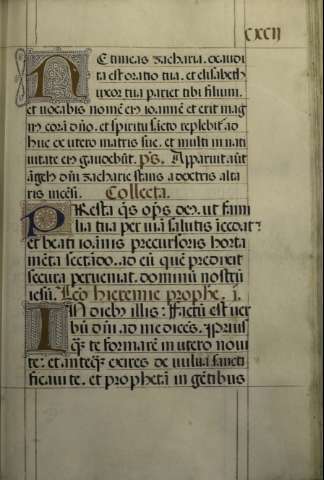 CXCII
NE timeas zacharia. exaudi
ta est oratio tua. et elisabeth
uxor tua pariet tibi filium.
et vocabis nomē eiꝰ ioannē et erit mag
nꝰ corā dño. et spiritu sācto replebit̄ ad
huc ex utero matris sue. et multi in nati
uitate eiꝰ gaudebūt. ps. Apparuit aūt
āgelꝰ dn̄i zacharie stans a dextris alta
ris incēsi. Collecta.
PResta q̄s op̄s deꝰ. ut fami
lia tua per uiā salutis īcedat
et beati ioānis precursoris horta
mēta sectādo. ad eū quē predixit
secura perueniat. dominū nostrū
iesū. Lc̄o hieremie prophe. i.
IN diebꝰ illis: Factū est uer
bū dn̄i. ad me dicēs. Prius
q̄ȝ te formarē in utero noui
te: et anteq̄ȝ exires de uulua sancti
ficaui te. et prophetā in gētibus